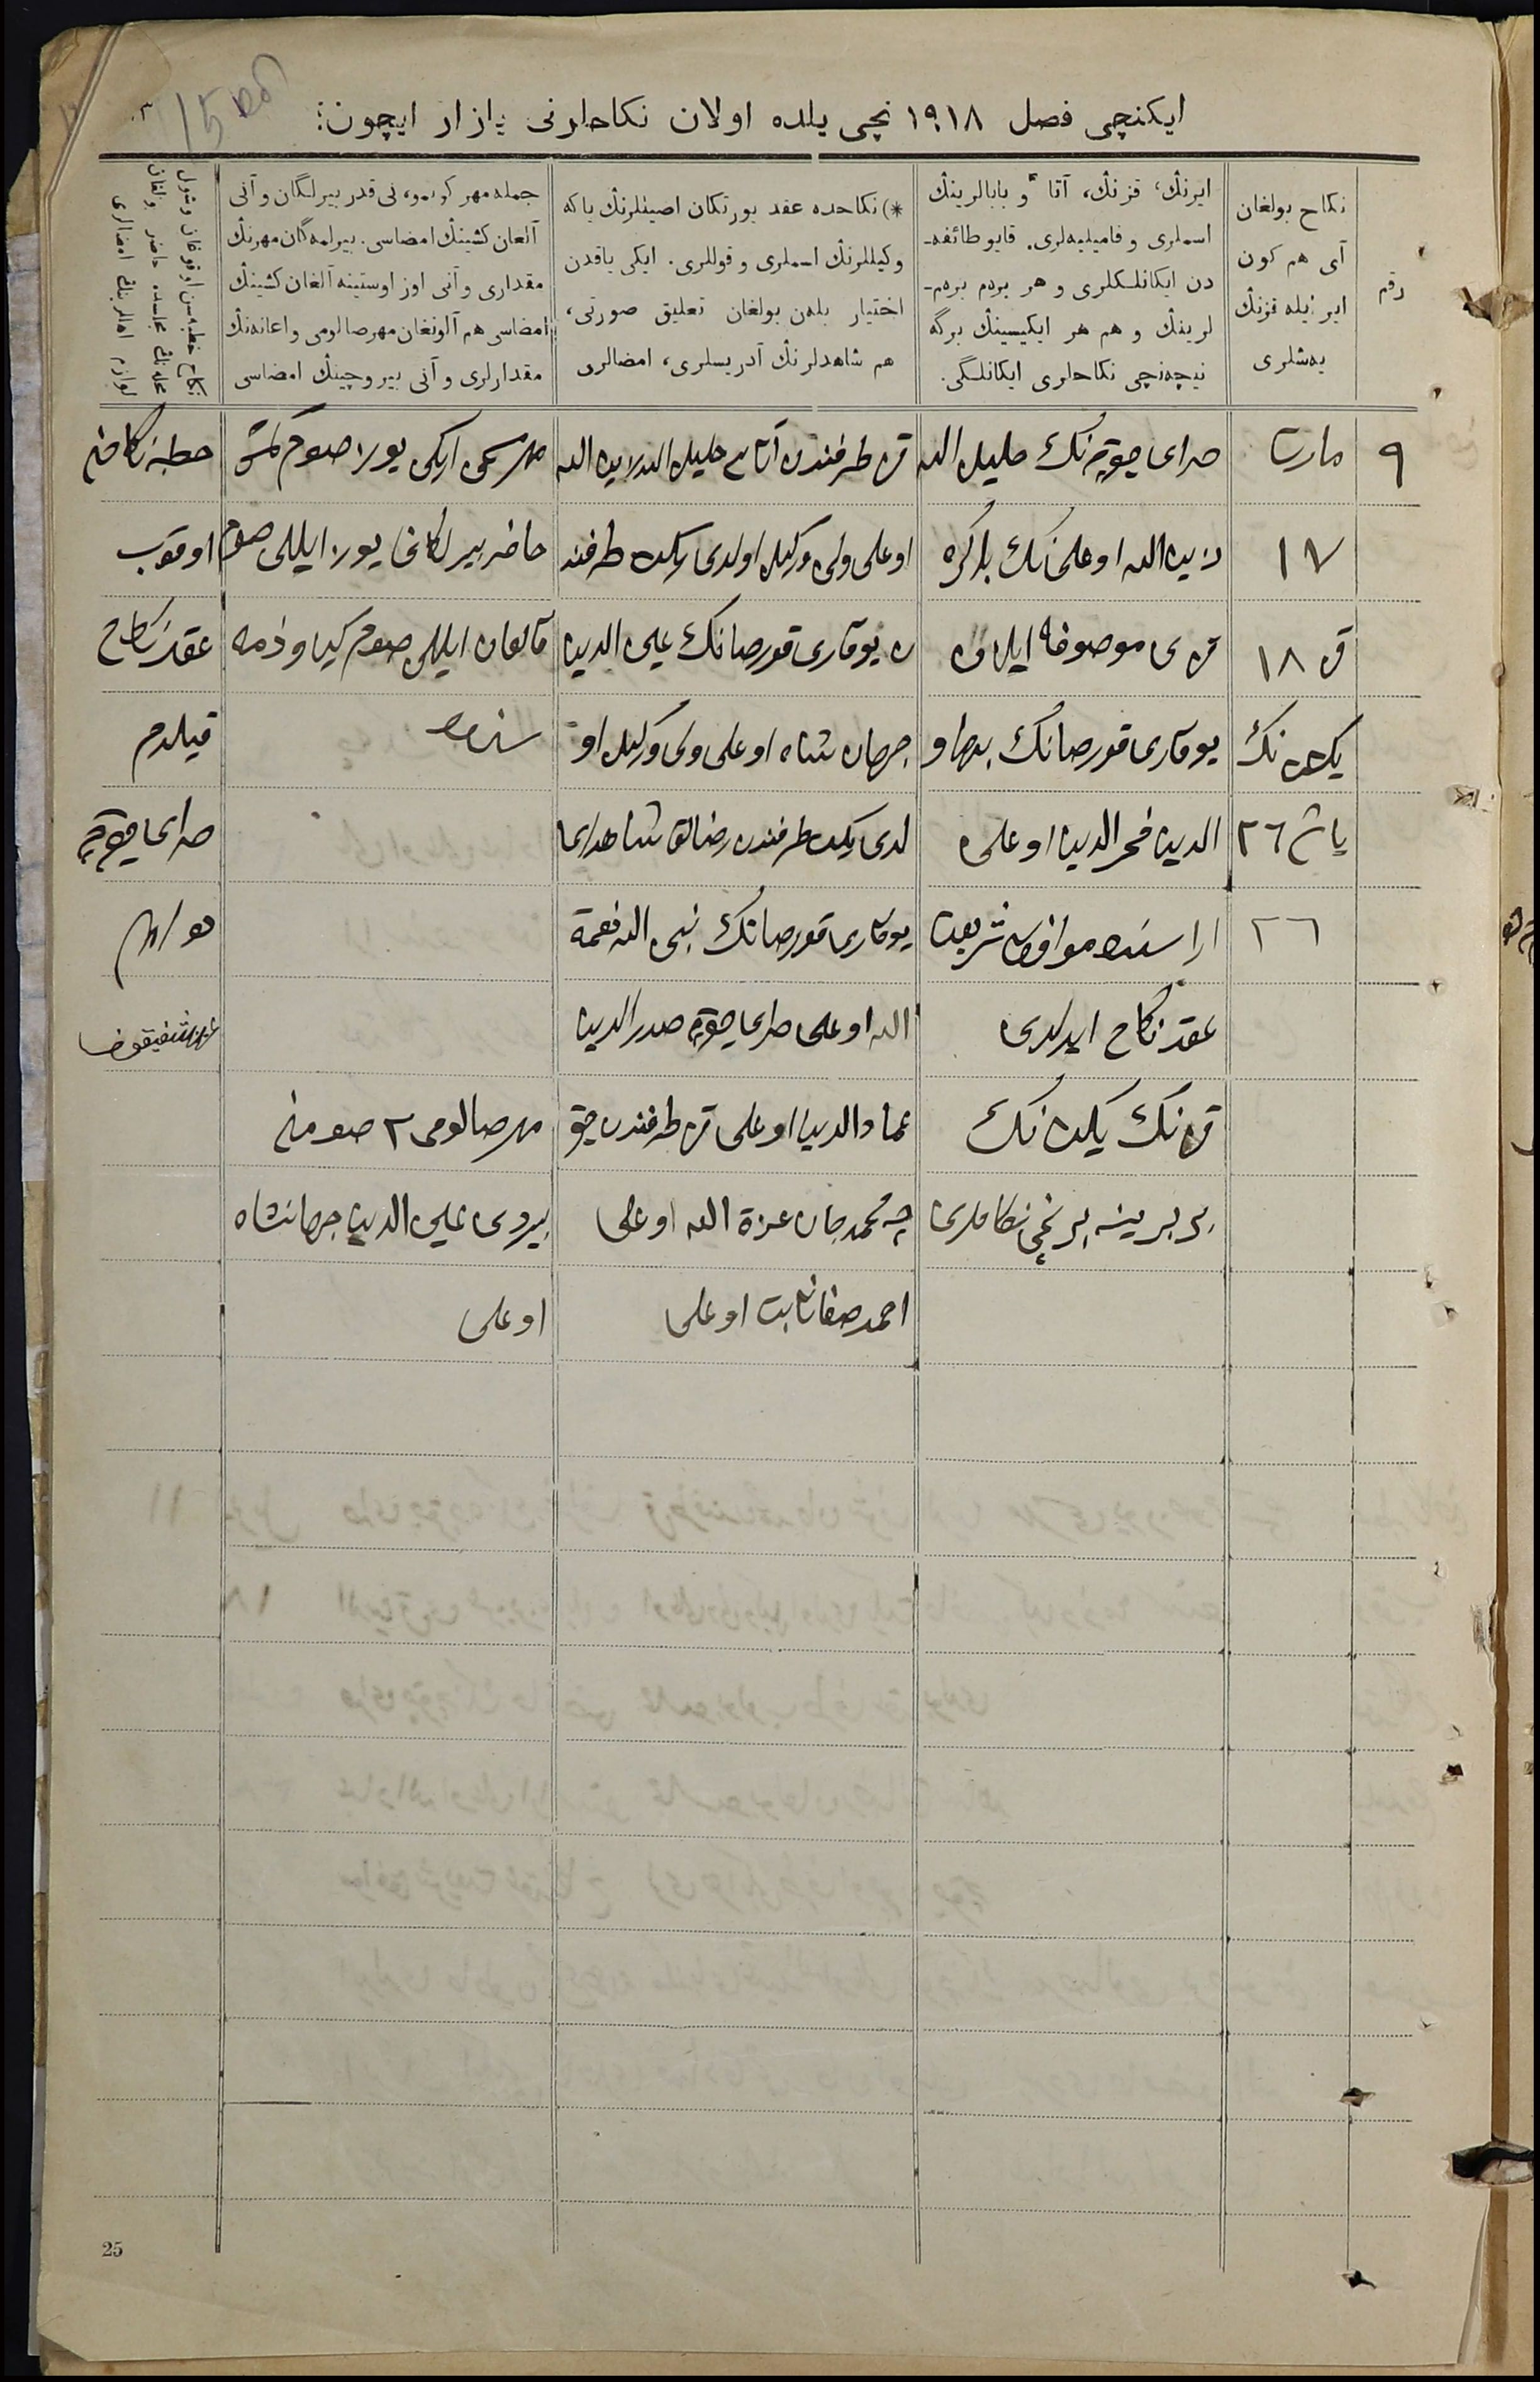 ایکنچی فصل ١٩١٨ نچی یلده اولان نکاحلرنی یازار ایچون:
رقم
نکاح بولغان
آی هم کون
ایر ایله قزنڭ
یەشلری
ایرنڭ، قزنڭ، آتا و بابالرینڭ
اسملری و فامیلیەلری. قایو طائفه‌ـ
دن ایکانلکلری و هر بردم بردم‌ـ
لرینڭ و هم هر ایکیسینڭ برگه
نیچەنچی نکاحلری ایکانلگی.
*) نکاحده عقد یورتکان اصیللرنڭ یاکه
وکیللرنڭ اسملری و قوللری. ایکی یاقدن
اختیار بلەن بولغان تعلیق صورتی،
هم شاهدلرنڭ آدریسلری، امضالری
جمله مهر کوبمو، نی قدر بیرلگان و آنی
آلغان کشینڭ امضاسی. بیرلمەگان مهرنڭ
مقداری و آنی اوز اوستینه آلغان کشینڭ
امضاسی هم آلونغان مهر صالومی و اعانەنڭ
مقدارلری و آنی بیروچینڭ امضاسی
نکاح خطبەسن اوقوغان و شول
مجلسده حاضر بولغان
لوازم اهالرینڭ امضالری
٩
مارت
١٧
قز ١٨
یکت نڭ
یاش ٢٦
٢٦
صرای چوقچه نڭ خلیل الله
زین الله اوغلی نڭ باکره
قزی موصوفه ایلان
یوقاری قورصانڭ بهاو
الدین فخرالدین اوغلی
اراسنده موافق شریعت
عقد نکاح ایدلدی
قزنڭ یکت نڭ
بر برینه برنچی نکاحلری
قز طرفندن آتاسی خلیل الله زین الله
اوغلی ولی وکیل اولدی یکت طرفند
ن یوقاری قورصانڭ علی الدین
جهان شاه اوغلی ولی وکیل او
لدی یکت طرفندن رضالق شاهدلری
یوقاری قورصانڭ نبی الله نعمة
الله اوغلی صرای چوقچه صدرالدین
عمادالدین اوغلی قز طرفندن چوق
چه محمدجان عزة الله اوغلی
احمدصفا ثابت اوغلی
مهر سمی ایکی یوز صوم کمش
حاضر بیرلگانی یوز ایللی صوم
قالغان ایللی صوم کیاو ذمه
سنده
مهر صالومی ٢ صومنی
بیردی علی الدین جهانشاه
اوغلی
خطبه نکاحنی
اوقوب
عقد نکاح
قیلدم
صرای چوقچه
15
25